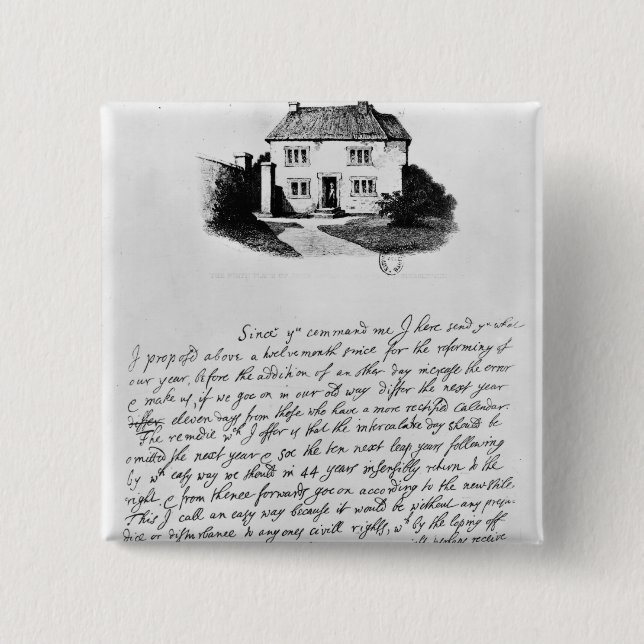 Since yᵘ command me I here send yᵘ what
I propos'd above a twelvemonth since for the reforming of
our year, before the addition of an other day increase the error
& make us, if we goe on in our old way differ the next year
differ eleven days from those who have a more rectified Calendar.
The remedie wᶜʰ I offer is that the intercalare day should be
omitted the next year & soe the ten next leap years following
by wᶜʰ easy way we should in 44 years insensibly return to the
right & from thence forwards goe on according to the new stile.
This I call an easy way because it would be without any preju-
dice or disturbance to any ones civill rights, wᶜʰ by the loping off
perhaps receive